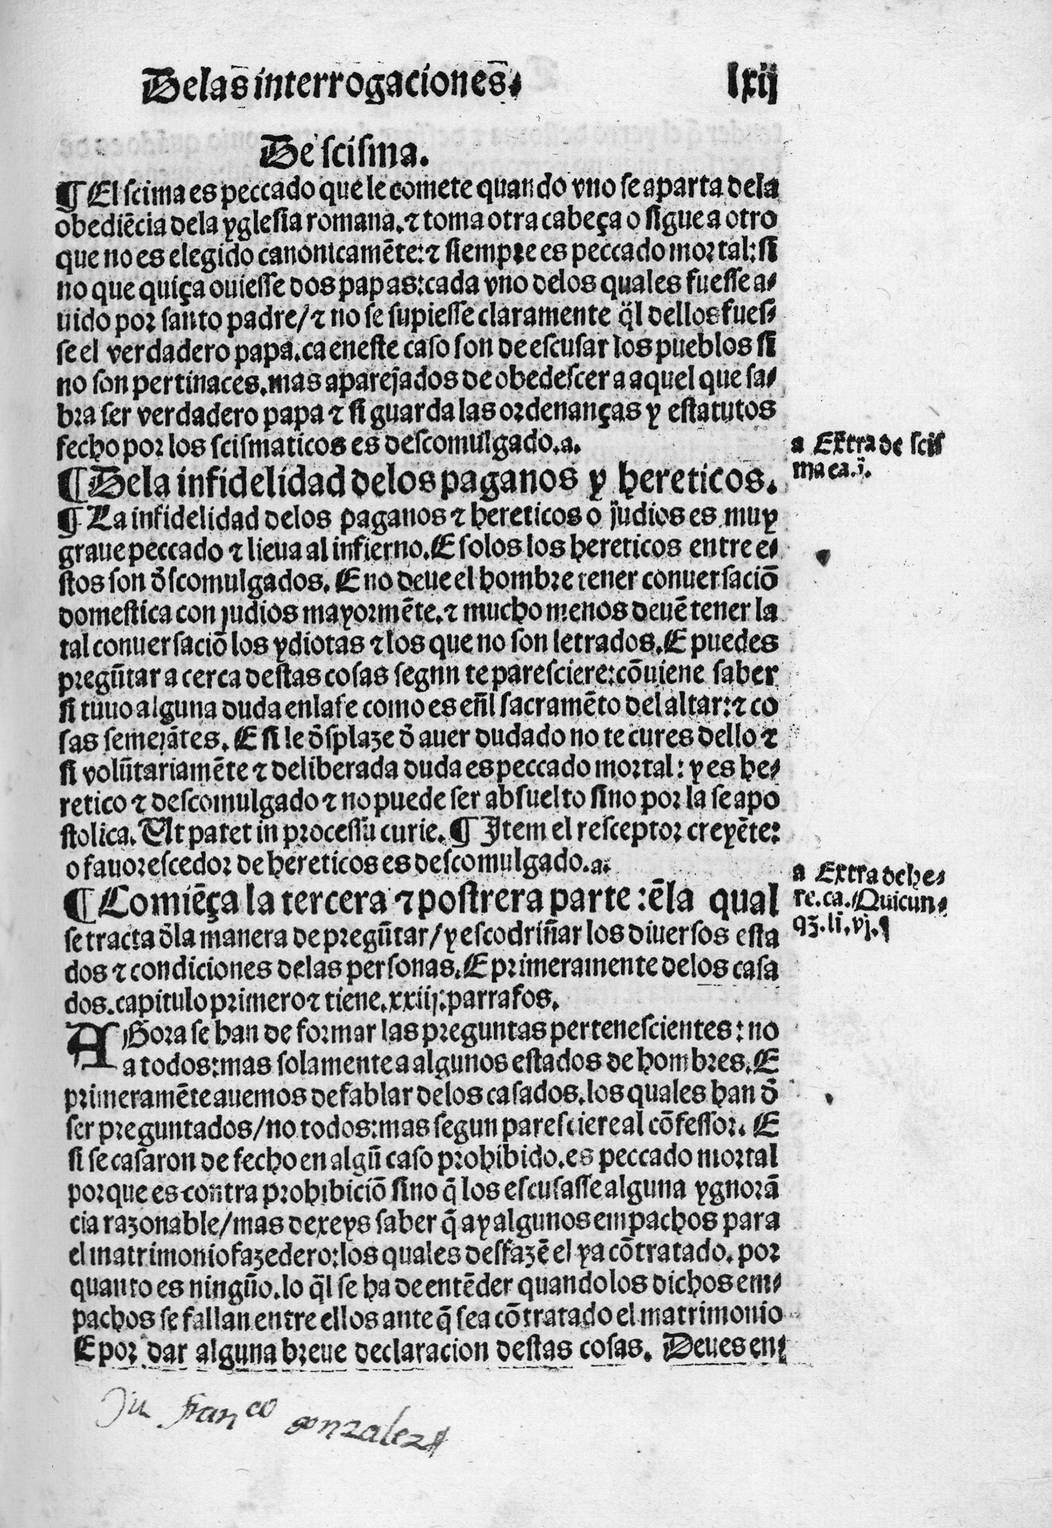 Delas interrogaciones. lxij
De scisma.
¶ El scima es peccado que se comete quando vno se aparta dela
obediẽcia dela yglesia romana. ⁊ toma otra cabeça o sigue a otro
que no es elegido canonicamẽte: ⁊ siempre es peccado mortal: si
no que quiça ouiesse dos papas: cada vno delos quales fuesse a-
uido por santo padre/ ⁊ no se supiesse claramente q̃l dellos fues-
se el verdadero papa. ca en este caso son de escusar los pueblos si
no son pertinaces. mas aparejados de obedescer a aquel que sa-
bra ser verdadero papa ⁊ si guarda las ordenanças y estatutos
fecho por los scismaticos es descomulgado. a.
a Extra de scis
ma ca. j.
¶ Dela infidelidad delos paganos y hereticos.
¶ La infidelidad delos paganos ⁊ hereticos o judios es muy
graue peccado ⁊ lieua al infierno. E solos los hereticos entre e-
stos son d̃scomulgados. E no deue el hombre tener conuersaciõ
domestica con judios mayormẽte. ⁊ mucho menos deuẽ tener la
tal conuersaciõ los ydiotas ⁊ los que no son letrados. E puedes
pregũtar a cerca destas cosas segun te paresciere: cõuiene saber
si tuuo alguna duda enla fe como es eñl sacramẽto del altar: ⁊ co
sas semejãtes. E si le d̃splaze d̃ auer dudado no te cures dello ⁊
si volũtariamẽte ⁊ deliberada duda es peccado mortal: y es he-
retico ⁊ descomulgado ⁊ no puede ser absuelto sino por la se apo
stolica. Ut patet in processu curie. ¶ Item el resceptor creyẽte:
o fauorescedor de hereticos es descomulgado. a.
a Extra de he-
re. ca. Quicun-
qʒ. li. vj. ¶
¶ Comiẽça la tercera ⁊ postrera parte: ẽla qual
se tracta d̃la manera de pregũtar/ y escodriñar los diuersos esta
dos ⁊ condiciones delas personas. E primeramente delos casa
dos. capitulo primero ⁊ tiene. xxiij. parrafos.
AGora se han de formar las preguntas pertenescientes: no
a todos: mas solamente a algunos estados de hombres. E
primeramẽte auemos de fablar delos casados. los quales han d̃
ser preguntados/ no todos: mas segun paresciere al cõfessor. E
si se casaron de fecho en algũ caso prohibido. es peccado mortal
porque es contra prohibiciõ sino q̃ los escusasse alguna ygnorã
cia razonable/ mas deueys saber q̃ ay algunos empachos para
el matrimonio fazedero: los quales desfazẽ el ya cõtratado. por
quanto es ningũo. lo q̃l se ha de entẽder quando los dichos em-
pachos se fallan entre ellos ante q̃ sea cõtratado el matrimonio
E por dar alguna breue declaracion destas cosas. Deues en-
Ju franco gonzalez